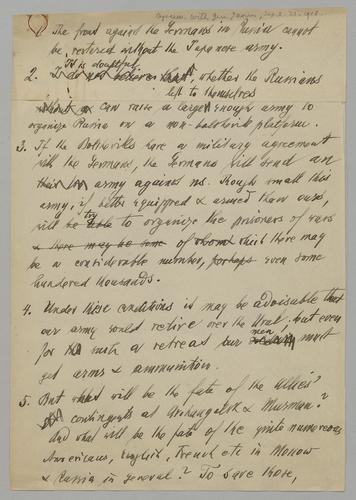 with Gen. Janin, Sept. 25. 1918.
1) The front against the Germans in Russia cannot
be restored without the Japanese army.
It is doubtful
2. I do not believe that, whether the Russians
left to themselves
can raise a large enough army to
organize Russia on a non-bolshevik platform.
3. If the Bolsheviks have a military agreement
with the Germans, the Germans will send an
army against us. Though small this
army, if better equipped & armed than ours,
will be try to organize the prisoners of wars
& there may be some of whom which there may
be a considerable number, perhaps even some
hundred thousands.
4. Under these conditions it may be advisable that
our army would retire over the Ural; but even
men,
for such a retreat our must
get arms & ammunition.
5. But what will be the fate of the allies'
contingents at Archangelsk & Murman?
And what will be the fate of the quite numerous
Americans, English, French etc in Moscow
& Russia in general? To save those,